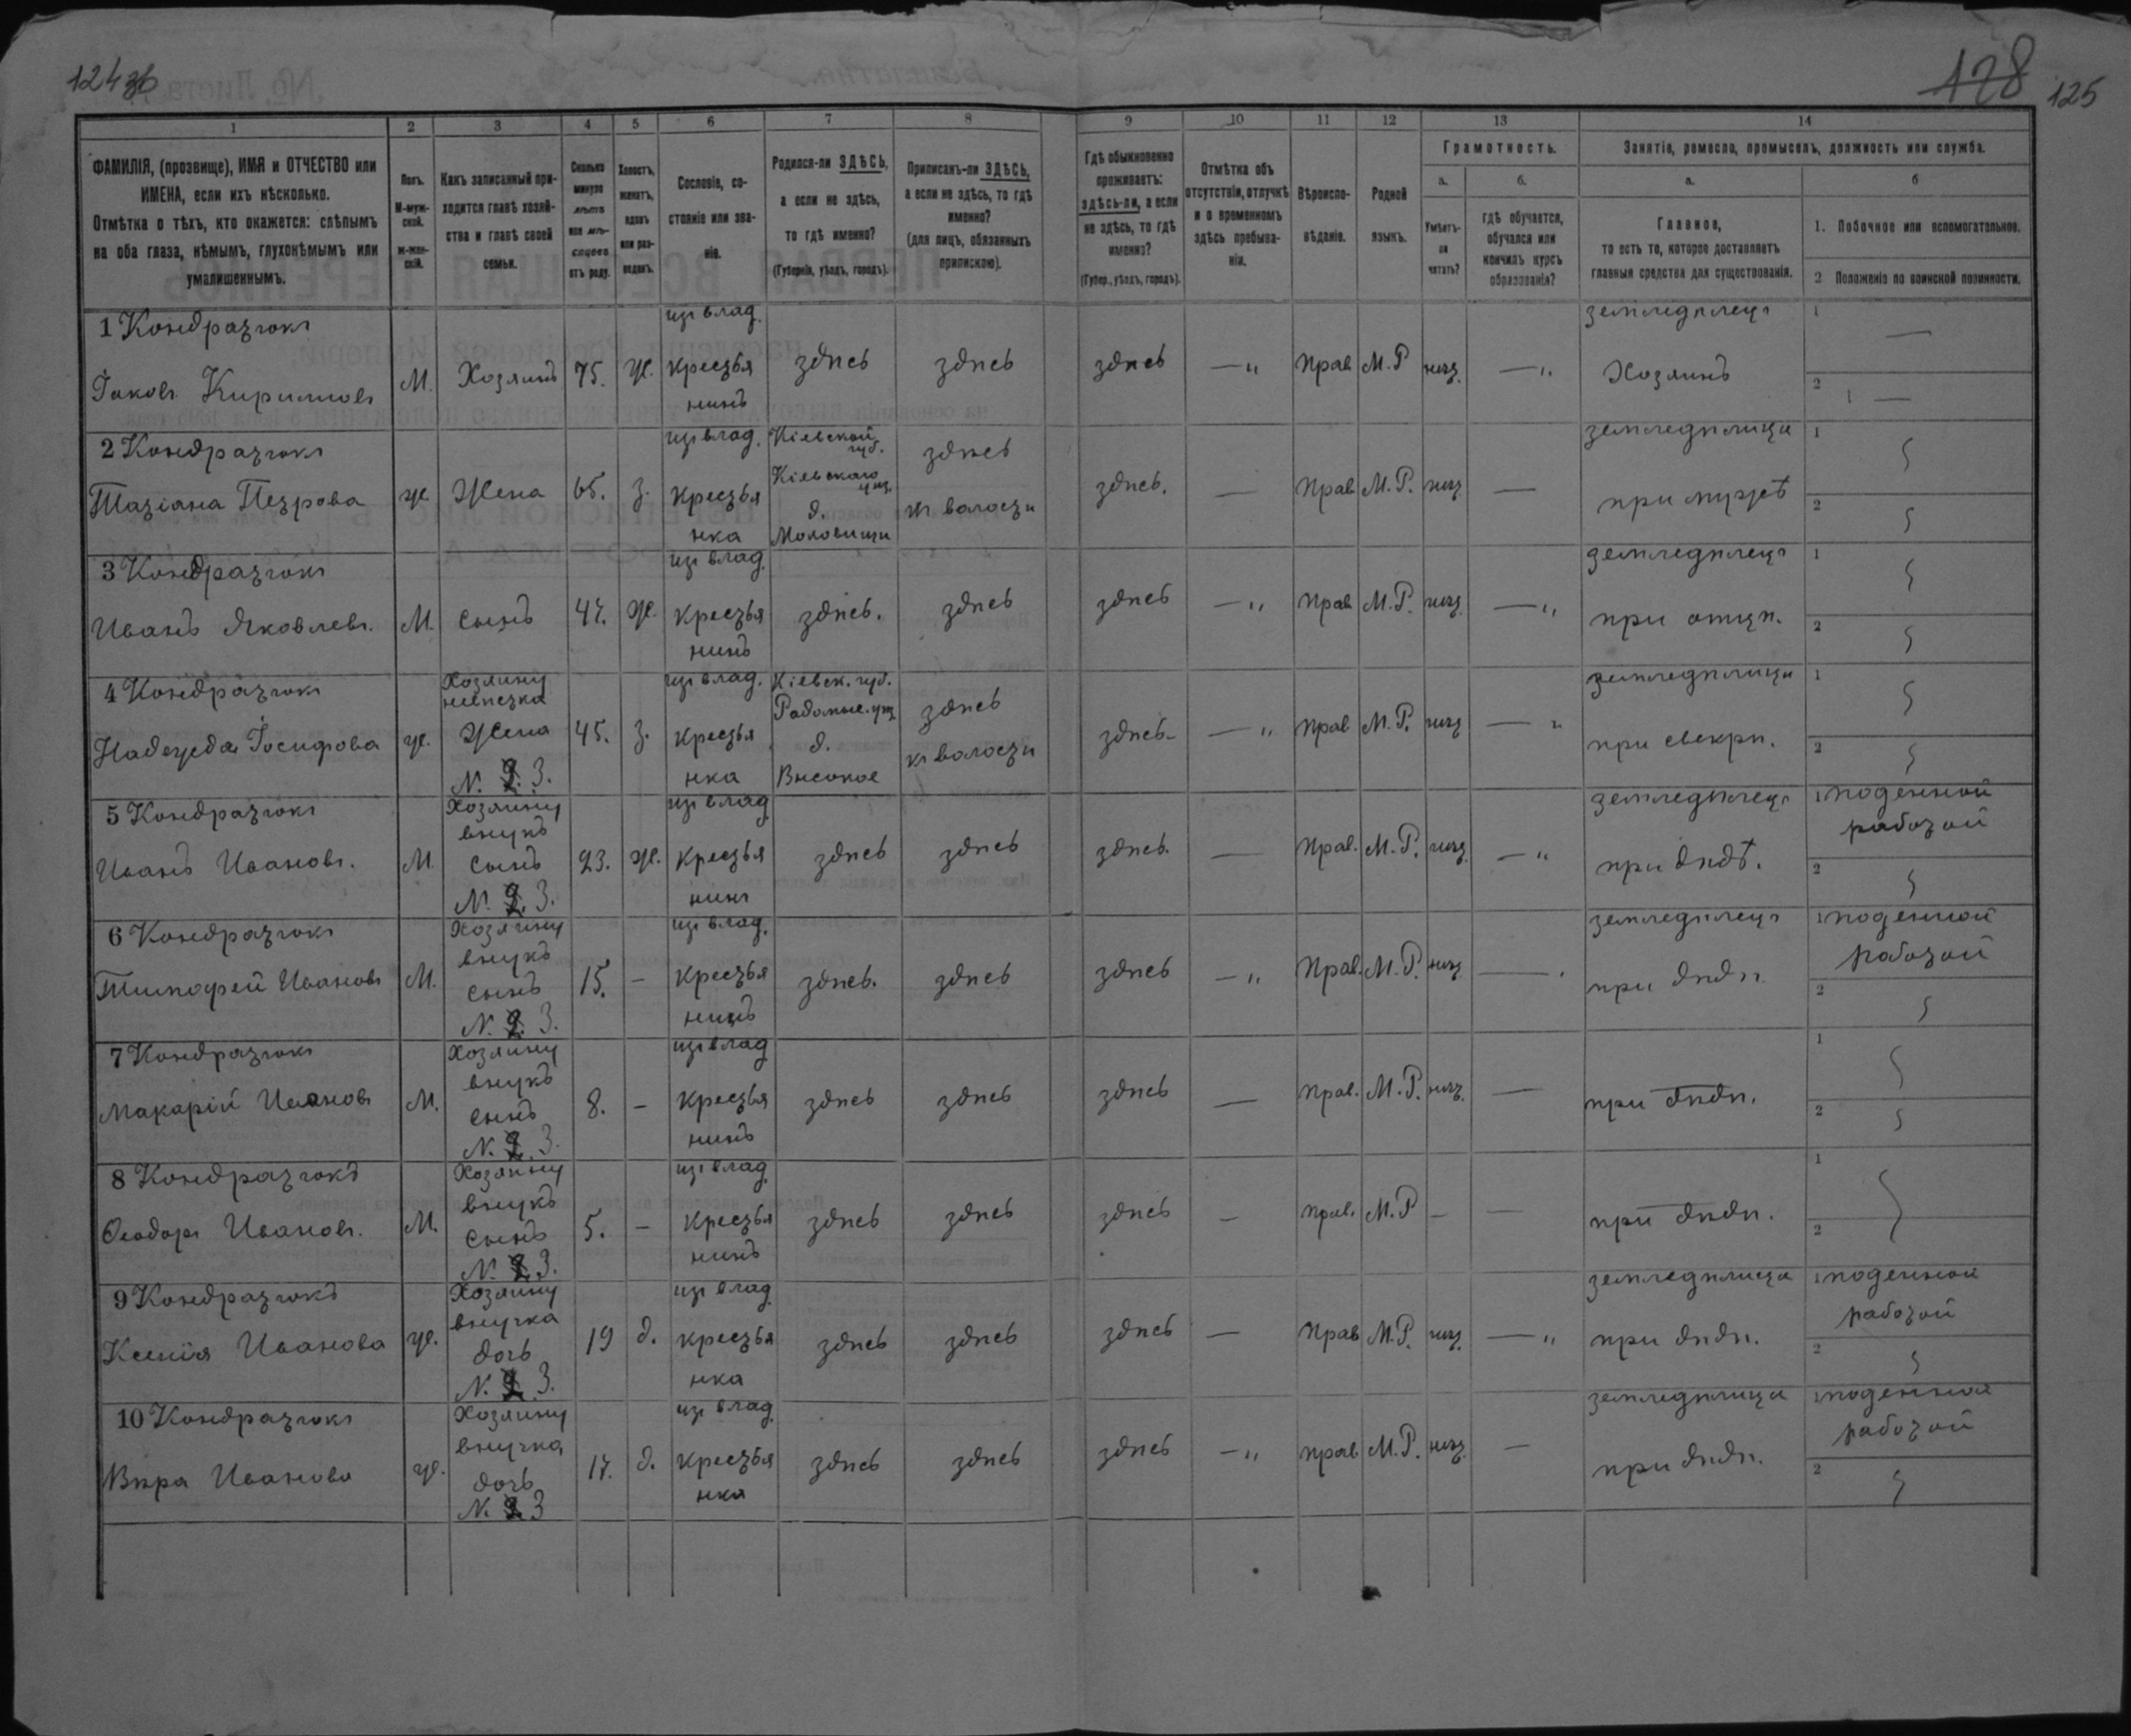 124 зв
128 125
1 2 3 4 5 6 7 8 9 10 11 12 13 14
ФАМИЛІЯ, (прозвище), ИМЯ и ОТЧЕСТВО или
ИМЕНА, если ихъ нѣсколько.
Отмѣтка о тѣхъ, кто окажется: слѣпымъ
на оба глаза, нѣмымъ, глухонѣмымъ или
умалишеннымъ.
Полъ.
М-муж-
ской.
ж-жен-
скій.
Какъ записанный при-
ходится главѣ хозяй-
ства и главѣ своей
семьи.
Сколько
минуло
лѣтъ
или мѣ-
сяцевъ
отъ роду.
Холостъ,
женатъ,
вдовъ
или раз-
веденъ.
Сословіе, со-
стояніе или зва-
ніе.
Родился-ли ЗДѢСЬ,
а если не здѣсь,
то гдѣ именно?
(Губернія, уѣздъ, городъ).
Приписанъ-ли ЗДѢСЬ,
а если не здѣсь, то гдѣ
именно?
(для лицъ, обязанныхъ
припискою).
Гдѣ обыкновенно
проживаетъ:
здѣсь-ли, а если
не здѣсь, то гдѣ
именно?
(Губер., уѣздъ, городъ).
Отмѣтка объ
отсутствіи, отлучкѣ
и о временномъ
здѣсь пребыва-
ніи.
Вѣроиспо-
вѣданіе.
Родной
языкъ.
Грамотность.
а.
Умѣетъ-
ли
читать?
б.
гдѣ обучается,
обучался или
кончилъ курсъ
образованія?
Занятіе, ремесло, промыселъ, должность или служба.
а.
Главное,
то есть то, которое доставляетъ
главныя средства для существованія.
б
1. Побочное или вспомогательное.
2 Положеніе по воинской повинности.
1 Кондратюкъ
Іаковъ Кириловъ
М. Хозяинъ 75. ж.
изъ влад.
крестья
нинъ
здѣсь здѣсь здѣсь — „ прав М. Р нѣт. — „
земледѣлецъ
Хозяинъ
1 —
2 —
2 Кондратюкъ
Татіана Петрова
ж. Жена 65. з.
изъ влад.
крестья
нка
Кіевской
губ.
Кіевскаго
уѣз.
д.
здѣсь
къ волости
здѣсь. — прав М. Р. нѣт —
земледѣлица
при мужѣ
1
2
3 Кондратюкъ
Иванъ Яковлевъ.
М. сынъ 47. ж.
изъ влад.
крестья
нинъ
здѣсь. здѣсь здѣсь — „ прав М. Р. нѣт — „
земледѣлецъ
при отцѣ.
1
2
4 Кондратюкъ
Надежда Іосифова
ж.
Хозяину
невѣстка
Жена
N. 2. 3.
45. з.
изъ влад.
крестья
нка
Кіевск. губ.
Радомыс. уѣз
д.
Высокое
здѣсь
къ волости
здѣсь — „ прав М. Р. нѣт — „
земледѣлица
при свекрѣ.
1
2
5 Кондратюкъ
Иванъ Ивановъ.
М.
Хозяину
внукъ
сынъ
N. 2. 3.
23. ж.
изъ влад
крестья
нинъ
здѣсь здѣсь здѣсь. — прав. М. Р. нѣт. — „
земледѣлецъ
при дѣдѣ.
1 поденной
работой
2
6 Кондратюкъ
Тимофей Ивановъ
М.
Хозяину
внукъ
сынъ
N. 2. 3.
15. –
изъ влад.
крестья
нинъ
здѣсь. здѣсь здѣсь — „ прав. М. Р. нѣт — .
земледѣлецъ
при дѣдѣ
1 поденной
работой
2
7 Кондратюкъ
Макарій Ивановъ
М.
Хозяину
внукъ
сынъ
N. 2. 3.
8. –
изъ влад
крестья
нинъ
здѣсь здѣсь здѣсь — прав. М. Р. нѣт. —
при дѣдѣ.
1
2
8 Кондратюкъ
Ѳеодоръ Ивановъ.
М.
Хозяину
внукъ
сынъ
N. 2. 3.
5. –
изъ влад
крестья
нинъ
здѣсь здѣсь здѣсь — прав. М. Р – —
при дѣдѣ.
1
2
9 Кондратюкъ
Ксенія Иванова
ж.
Хозяину
внучка
дочь
N. 2 3.
19 д.
изъ влад
крестья
нка
здѣсь здѣсь здѣсь — прав М. Р. нѣт. — „
земледѣлица
при дѣдѣ.
1 поденной
работой
2
10 Кондратюкъ
Вѣра Иванова
ж.
Хозяину
внучка
дочь
N. 2 3
17. д.
изъ влад
крестья
нка
здѣсь здѣсь здѣсь — „ прав М. Р. нѣт. —
земледѣлица
при дѣдѣ.
1 поденной
работой
2